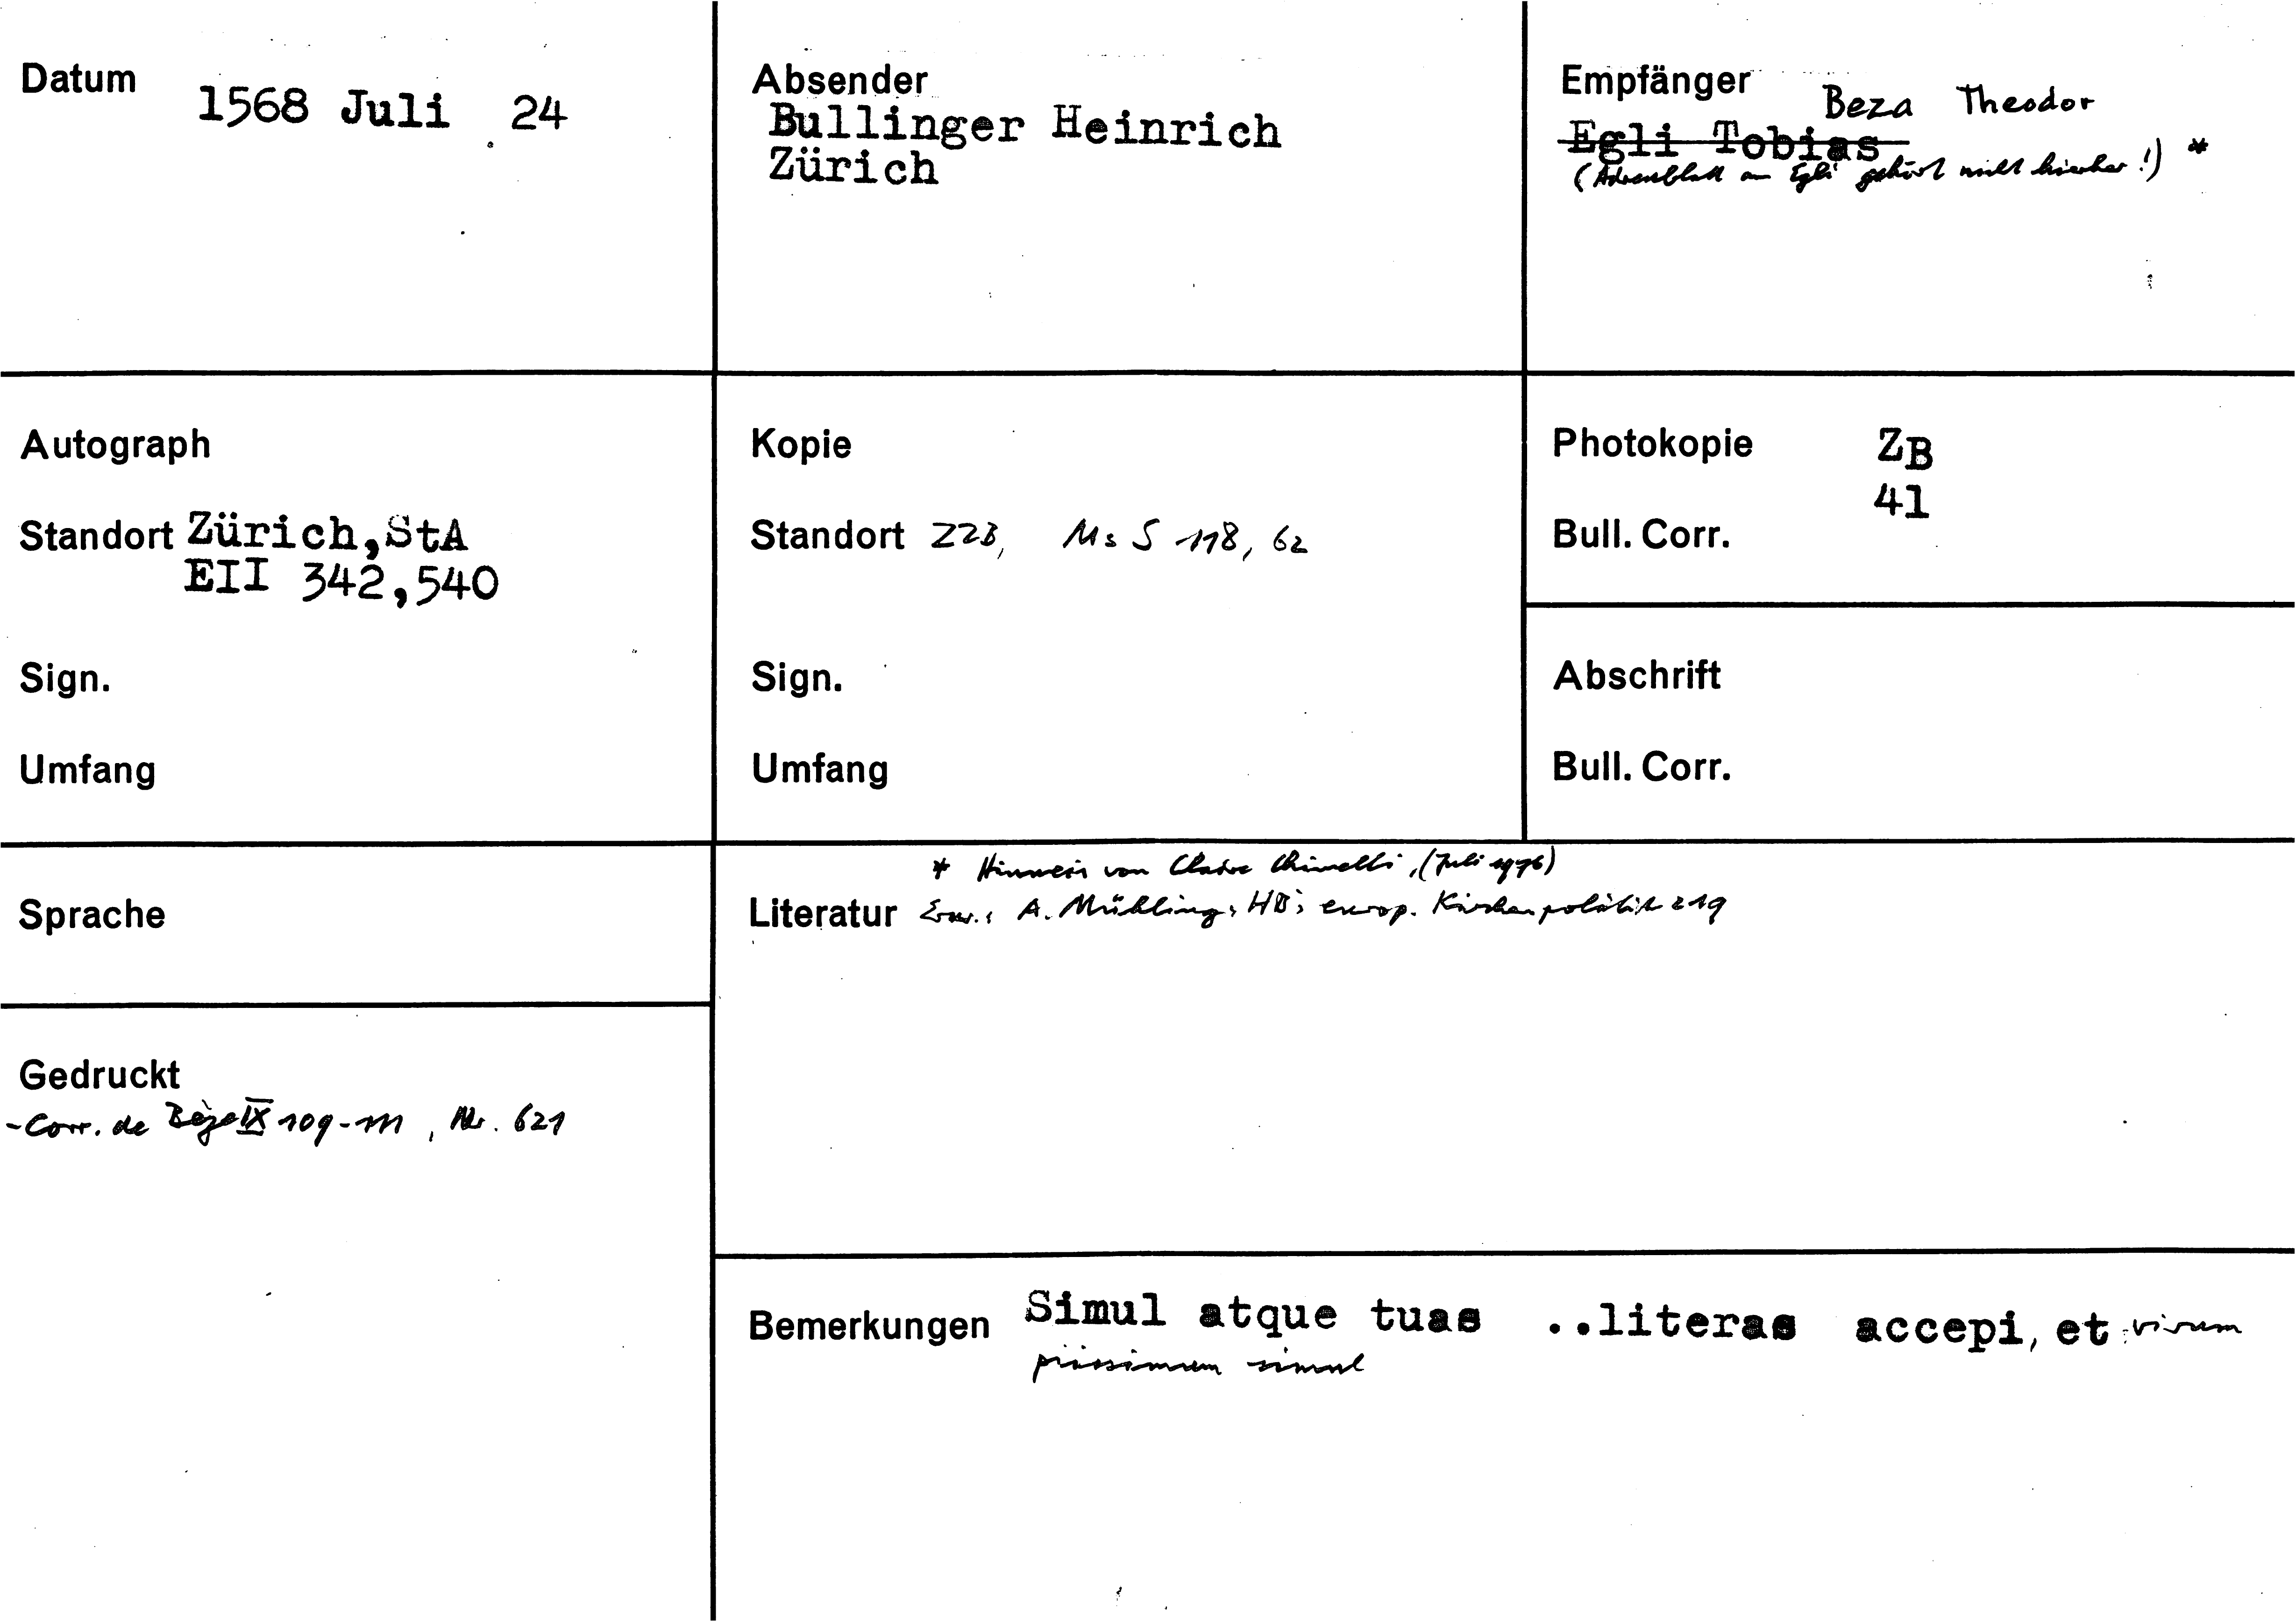 Datum 1568 Juli 24
Absender
Bullinger Heinrich
Zürich
Empfänger Beza Theodor
Egli Tobias
(Adressblatt an Egli gehört nicht hierher!) *
Autograph
Standort Zürich, StA
EII 342,540
Sign.
Umfang
Kopie
Standort ZZB, Ms S 118, 62
Sign.
Umfang
Photokopie ZB
41
Bull. Corr.
Abschrift
Bull. Corr.
Sprache
* Hinweis von Claire Chimelli, (Juli 1976)
Literatur Erw.: A. Mühling, HBs europ. Kirchenpolitik 219
Gedruckt
- Corr. de Bèze IX 109-111, Nr. 621
Bemerkungen Simul atque tuas ..literas accepi, et virum
piissimum simul